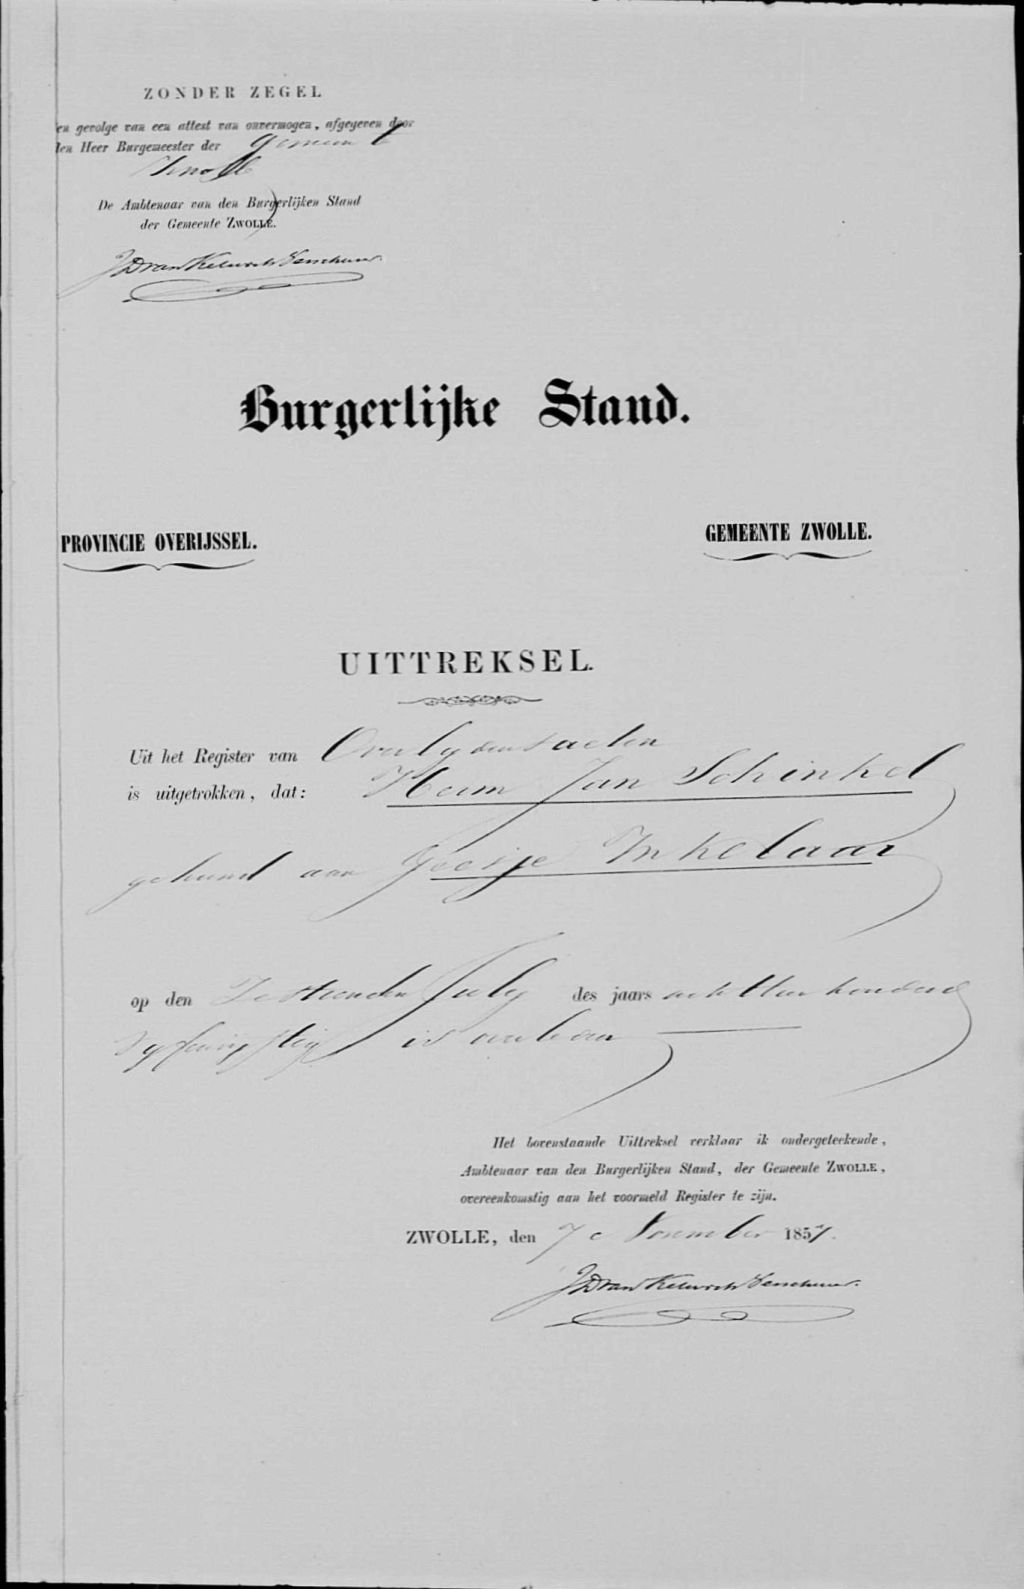 ZONDER ZEGEL
en gevolge van een attest van onvermogen, afgegeven door
den Heer Burgemeester der gemeente
Zwolle
De Ambtenaar van den Burgerlijken Stand
der Gemeente ZWOLLE.
Burgerlijke Stand.
PROVINCIE OVERIJSSEL.
GEMEENTE ZWOLLE.
UITTREKSEL.
Uit het Register van Overlydensacten
is uitgetrokken, dat: Harm Jan Schinkel
gehuwd aan Geesje Inkelaar
op den Zestienden July des jaars achttien honderd
vyfenvyftig is overleden
Het bovenstaande Uittreksel verklaar ik ondergeteekende,
Ambtenaar van den Burgerlijken Stand, der Gemeente ZWOLLE,
overeenkomstig aan het voormeld Register te zijn.
ZWOLLE, den 7e November 1857.